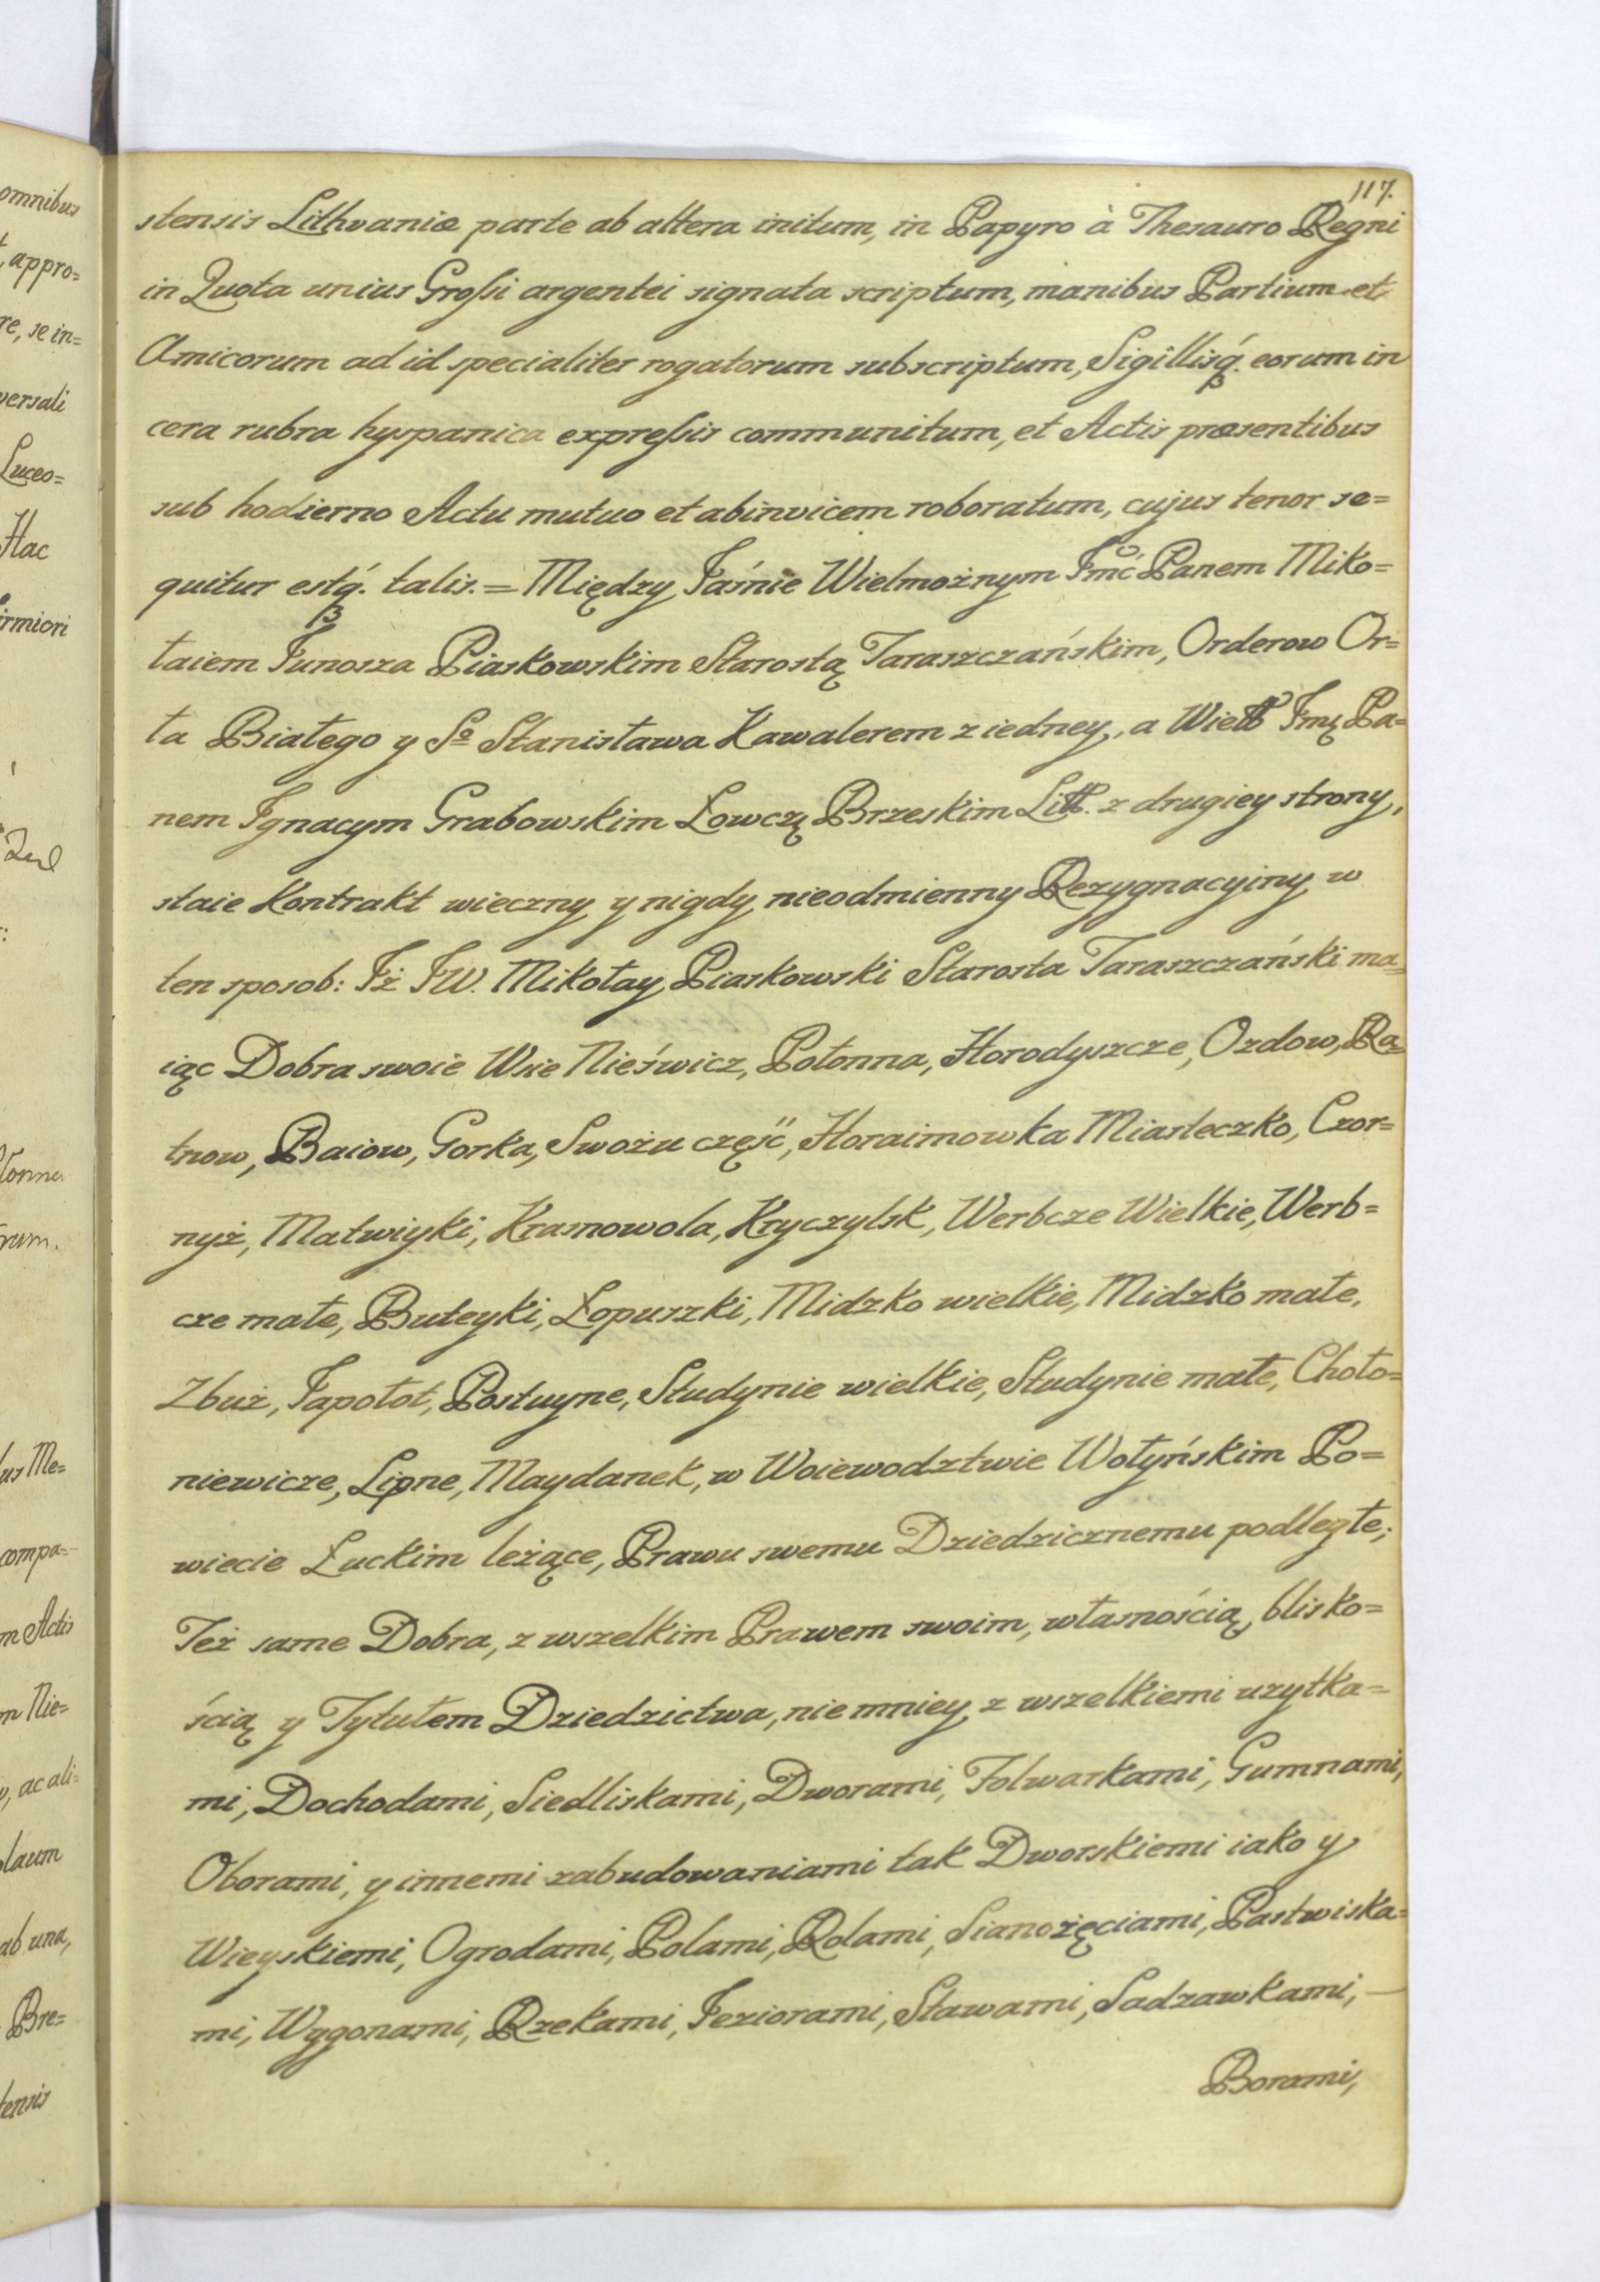 117.
stensis Lithvaniæ parte ab altera initum, in Papyro à Thesauro Regni
in Quota unius Grossi argentei signata scriptum, manibus Partium et
Amicorum ad id specialiter rogatorum subscriptum, Sigillisq́. eorum in
cera rubra hyspanica expressis communitum, et Actis præsentibus
sub hodierno Actu mutuo et abinvicem roboratum, cujus tenor se=
quitur estq́. talis. = Między Jaśnie Wielmożnym Jmć Panem Miko=
łaiem Junosza Piaskowskim Starostą Taraszczańskim, Orderow Or=
ła Białego y So Stanisława Kawalerem z iedney, a Wiel Jmą Pa=
nem Ignacym Grabowskim Łowczą Brzeskim Litt. z drugiey strony,
staie Kontrakt wieczny y nigdy nieodmienny Rezygnacyiny w
ten sposob: Iż JW. Mikołay Piaskowski Starosta Taraszczański ma=
iąc Dobra swoie Wsie Nieświcz, Połonna, Horodyszcze, Ozdow, Ra=
tnow, Baiow, Gorka, Swożu część, Horaimowka Miasteczko, Czor=
nyż, Matwiyki, Kramowola, Kryczylsk, Werbcze Wielkie, Werb=
cze małe, Buteyki, Łopuszki, Midzko wielkie, Midzko małe,
Zbuż, Japołot, Postuyne, Studynie wielkie, Studynie małe, Choło=
niewicze, Lipne, Maydanek, w Woiewodztwie Wołyńskim Po=
wiecie Łuckim leżące, Prawu swemu Dziedzicznemu podległe;
Też same Dobra, z wszelkim Prawem swoim, własnością, blisko=
ścią y Tytułem Dziedzictwa, nie mniey z wszelkiemi uzytka=
mi, Dochodami, Siedliskami, Dworami, Folwarkami, Gumnami,
Oborami, y innemi zabudowaniami tak Dworskiemi iako y
Wieyskiemi, Ogrodami, Polami, Rolami, Sianożęciami, Pastwiska=
mi, Wygonami, Rzekami, Jeziorami, Stawami, Sadzawkami, —
Borami,
omnibus
appro=
re, se in=
versali
Luceo=
Hac
irmiori
us Me=
compa=
m Actis
m Nie=
ac ali=
laum
ab una,
Bre=
tensis